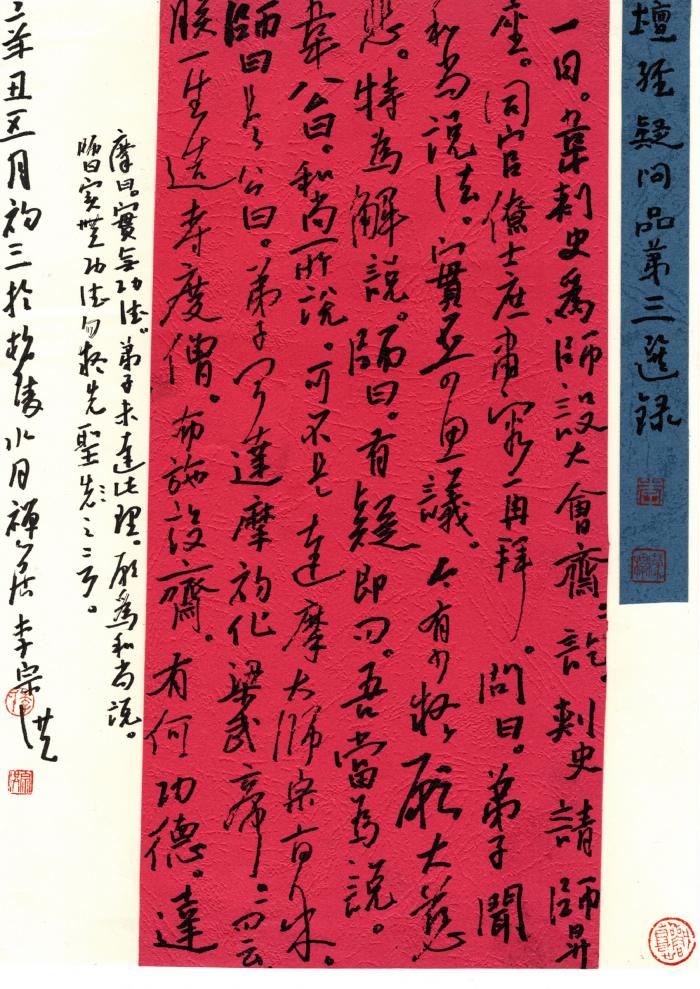 壇經疑問品第三選録
一日。韋刺史為師設大會齋。〻訖。刺史請師昇
座。同官僚士庶肅容再拜。問曰。弟子聞
和尚說法。實不可思議。今有少疑。願大慈
悲。特為解說。師曰。有疑即問。吾當為說。
韋公曰。和尚所說。可不是達摩大師宗旨乎。
師曰是。公曰。弟子聞達摩初化梁武帝。帝云
朕一生造寺度僧。布施設齋。有何功德。達
摩曰。實無功德。弟子未達此理。願為和尚說。
師曰實無功德勿疑先聖之言。
辛丑五月初三於陵水月禪居李宗